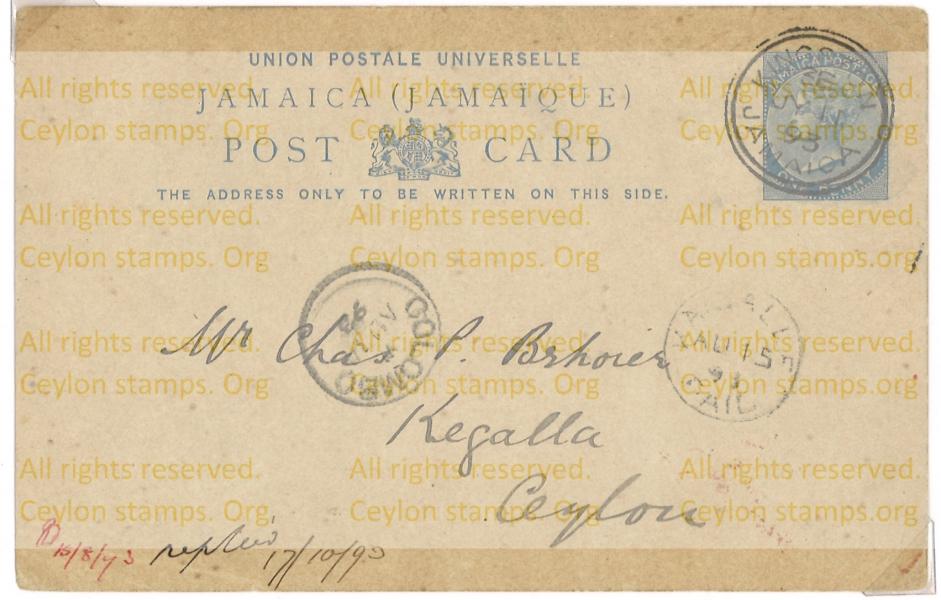 UNION POSTALE UNIVERSELLE
JAMAICA (JAMAÏQUE)
POST CARD
THE ADDRESS ONLY TO BE WRITTEN ON THIS SIDE.
JAMAICA POSTAGE
ONE PENNY
KINGSTON
JAMAICA
93
COLOMBO
93
AU 15
93
Mr Chas. P.
Kegalla
Ceylon
15/8/93 replied 17/10/93
All rights reserved. All rights reserved. All rights reserved.
Ceylon stamps. Org Ceylon stamps. Org Ceylon stamps. Org
All rights reserved. All rights reserved. All rights reserved.
Ceylon stamps. Org Ceylon stamps. Org Ceylon stamps. Org
All rights reserved. All rights reserved. All rights reserved.
Ceylon stamps. Org Ceylon stamps. Org Ceylon stamps. Org
All rights reserved. All rights reserved. All rights reserved.
Ceylon stamps. Org Ceylon stamps. Org Ceylon stamps. Org